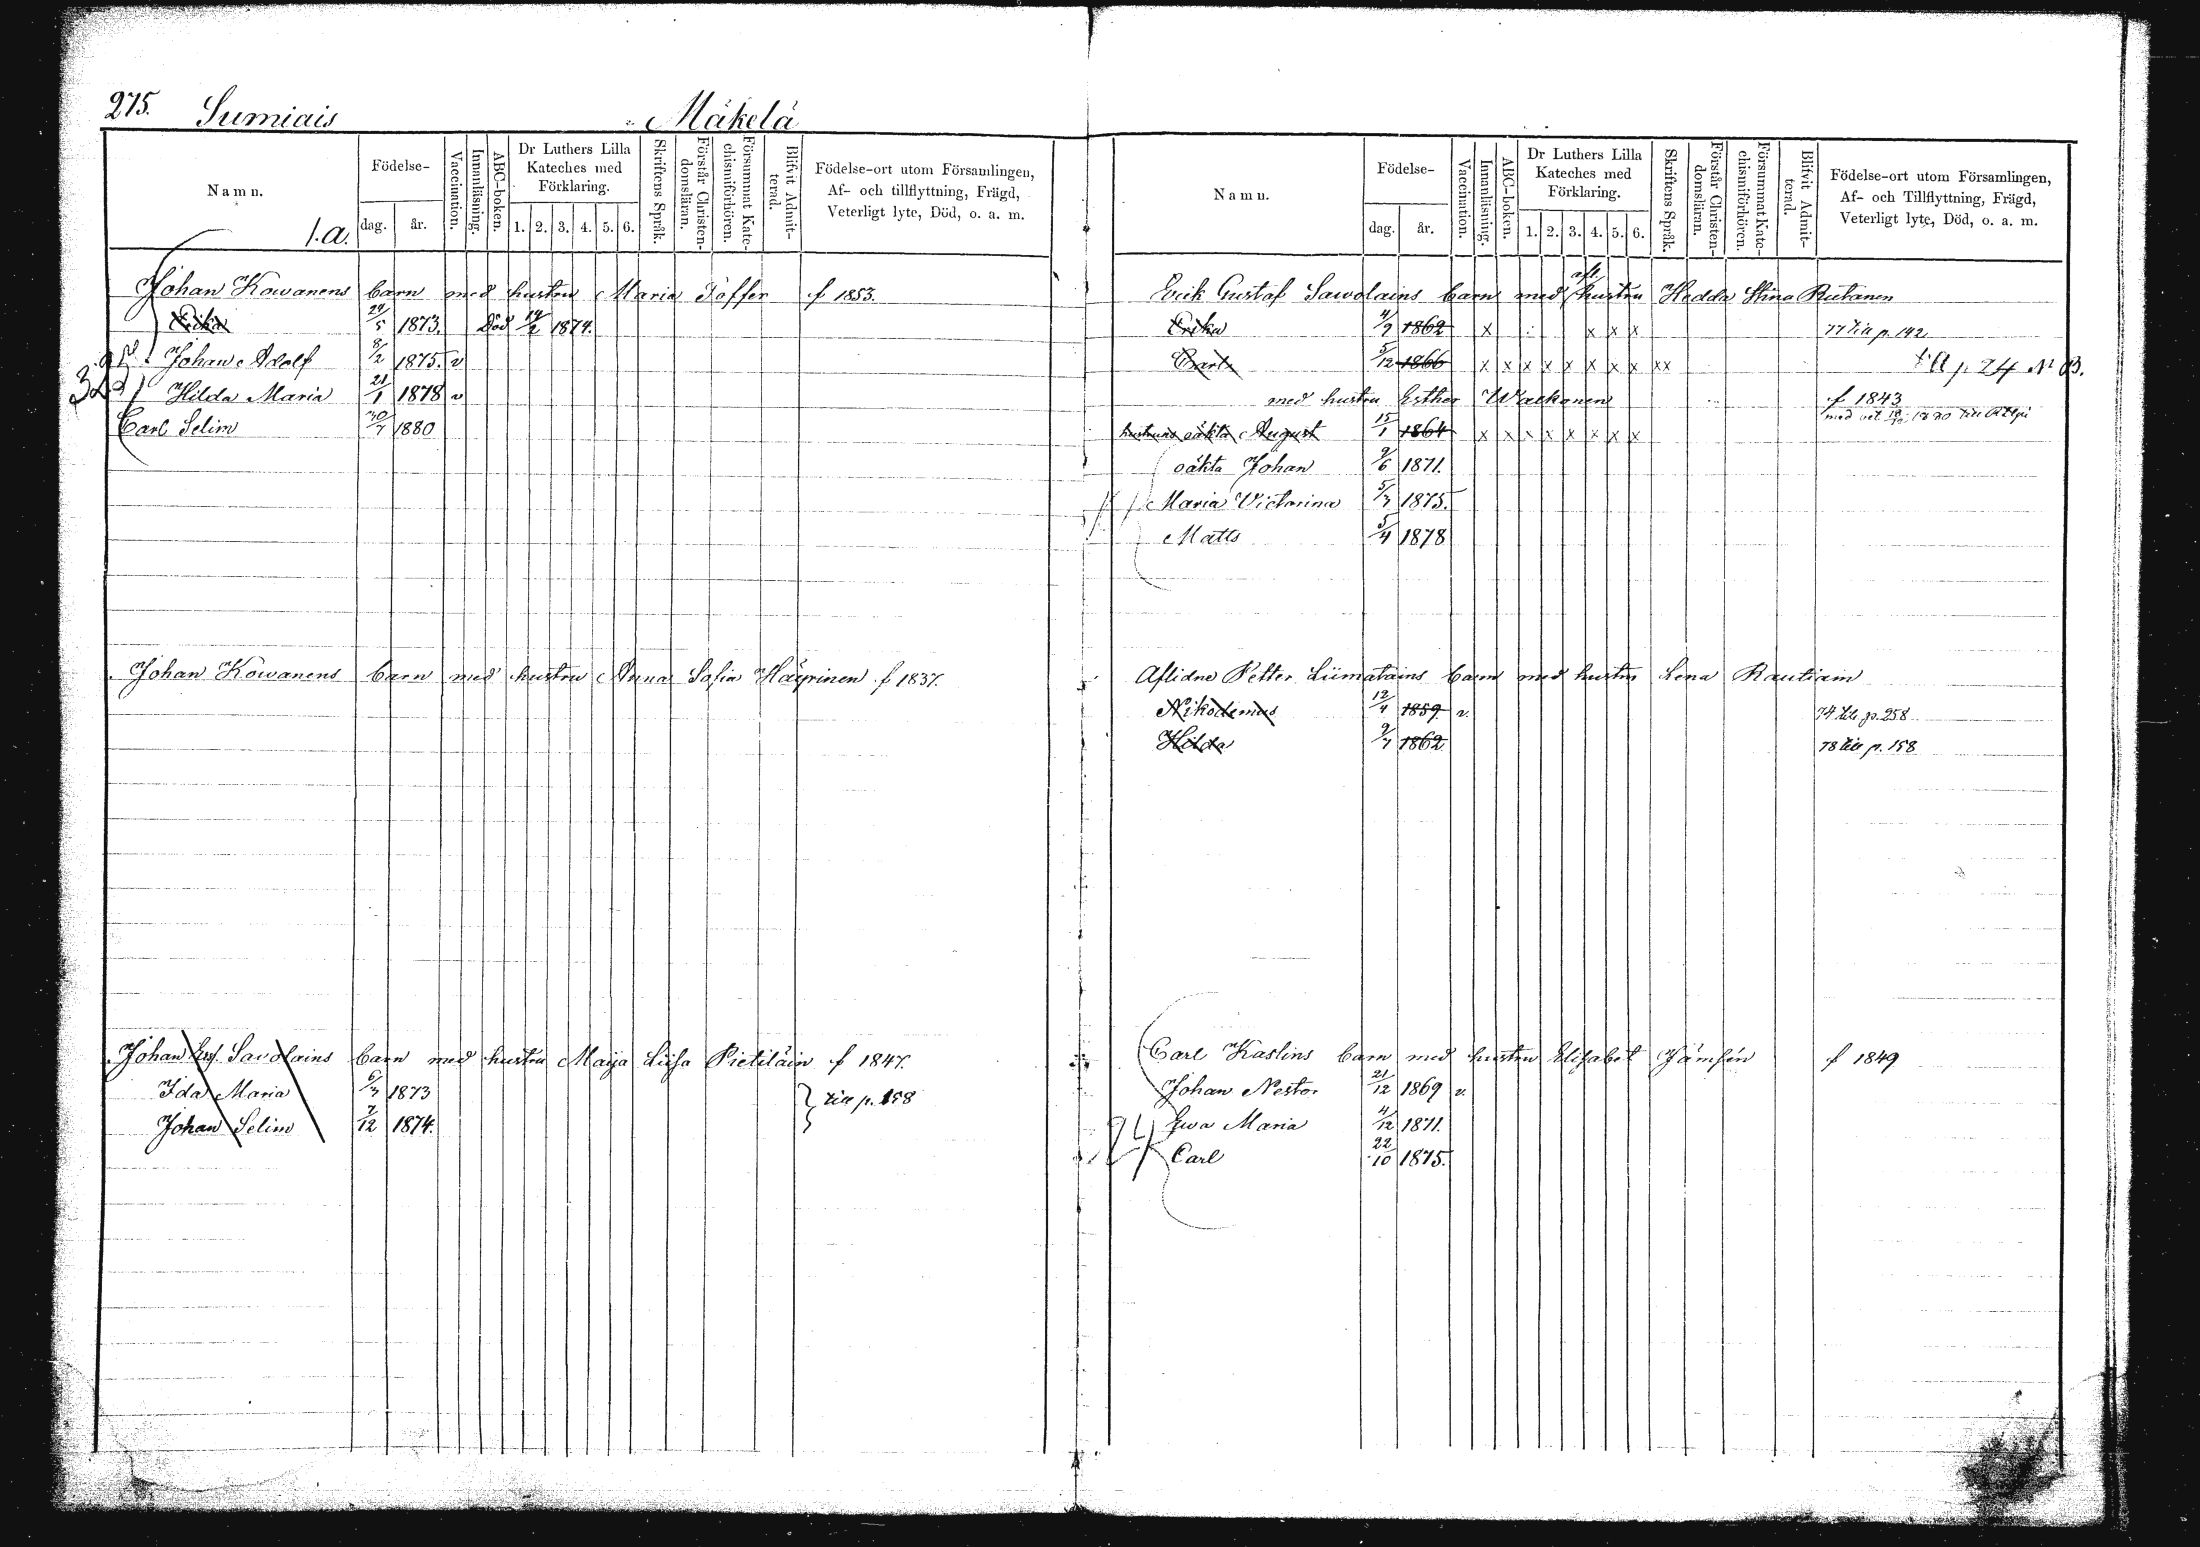 275. Sumiais Mäkelä
Namn.
Födelse-
dag. år.
Vaccination.
Innanläsning.
ABC-boken.
Dr Luthers Lilla
Kateches med
Förklaring.
1. 2. 3. 4. 5. 6.
Skriftens Språk.
Förstår Christen-
domsläran.
Försummat Kate-
chismiförhören.
Blifvit Admit-
terad.
Födelse-ort utom Församlingen,
Af- och tillflyttning, Frägd,
Veterligt lyte, Död, o. a. m.
1.a.
Johan Kowanens barn med hustru Maria Toffer f 1853.
Erika 5 1873. Död 2 1874.
Johan Adolf 8/2 1875. v
Hilda Maria 21/1 1878 v
Carl Selim 30/7 1880
Johan Kowanens barn med hustru Anna Sofia Käyrinen f 1837.
Johan Savolains barn med hustru Maija Liisa Pietiläin f 1847.
Ida Maria 1873
till p. 158
Johan Selim 7/12 1874.
Namn.
Födelse-
dag. år.
Vaccination.
Innanläsning.
ABC-boken.
Dr Luthers Lilla
Kateches med
Förklaring.
1. 2. 3. 4. 5. 6.
Skriftens Språk.
Förstår Christen-
domsläran.
Försummat Kate-
chismiförhören.
Blifvit Admit-
terad.
Födelse-ort utom Församlingen,
Af- och Tillflyttning, Frägd,
Veterligt lyte, Död, o. a. m.
Erik Gustaf Sawolains barn med afl. hustru Hedda Stina Rutanen
Erika 4/9 1862 x x x x 77 till p. 142
Carl 5/12 1866 x x x x x x x x xx till p. 24 N:o B.
med hustru Esther Waekonen f 1843
hustruns oäkta August 15/1 1864 x x x x x x x x
oäkta Johan 9/6 1871.
Maria Victorina 1875.
Matts 5/4 1878
Aflidne Petter Liimatains barn med hustru Lena Rautiain
Nikodemus 12/4 1859 v. 74 till p. 258
Hilda 9/7 1862 78 till p. 158
Carl Kaslins barn med hustru Elisabet Jämsén f 1849
Johan Nestor 21/12 1869 v.
Ewa Maria 4/12 1871.
Carl 22/10 1875.